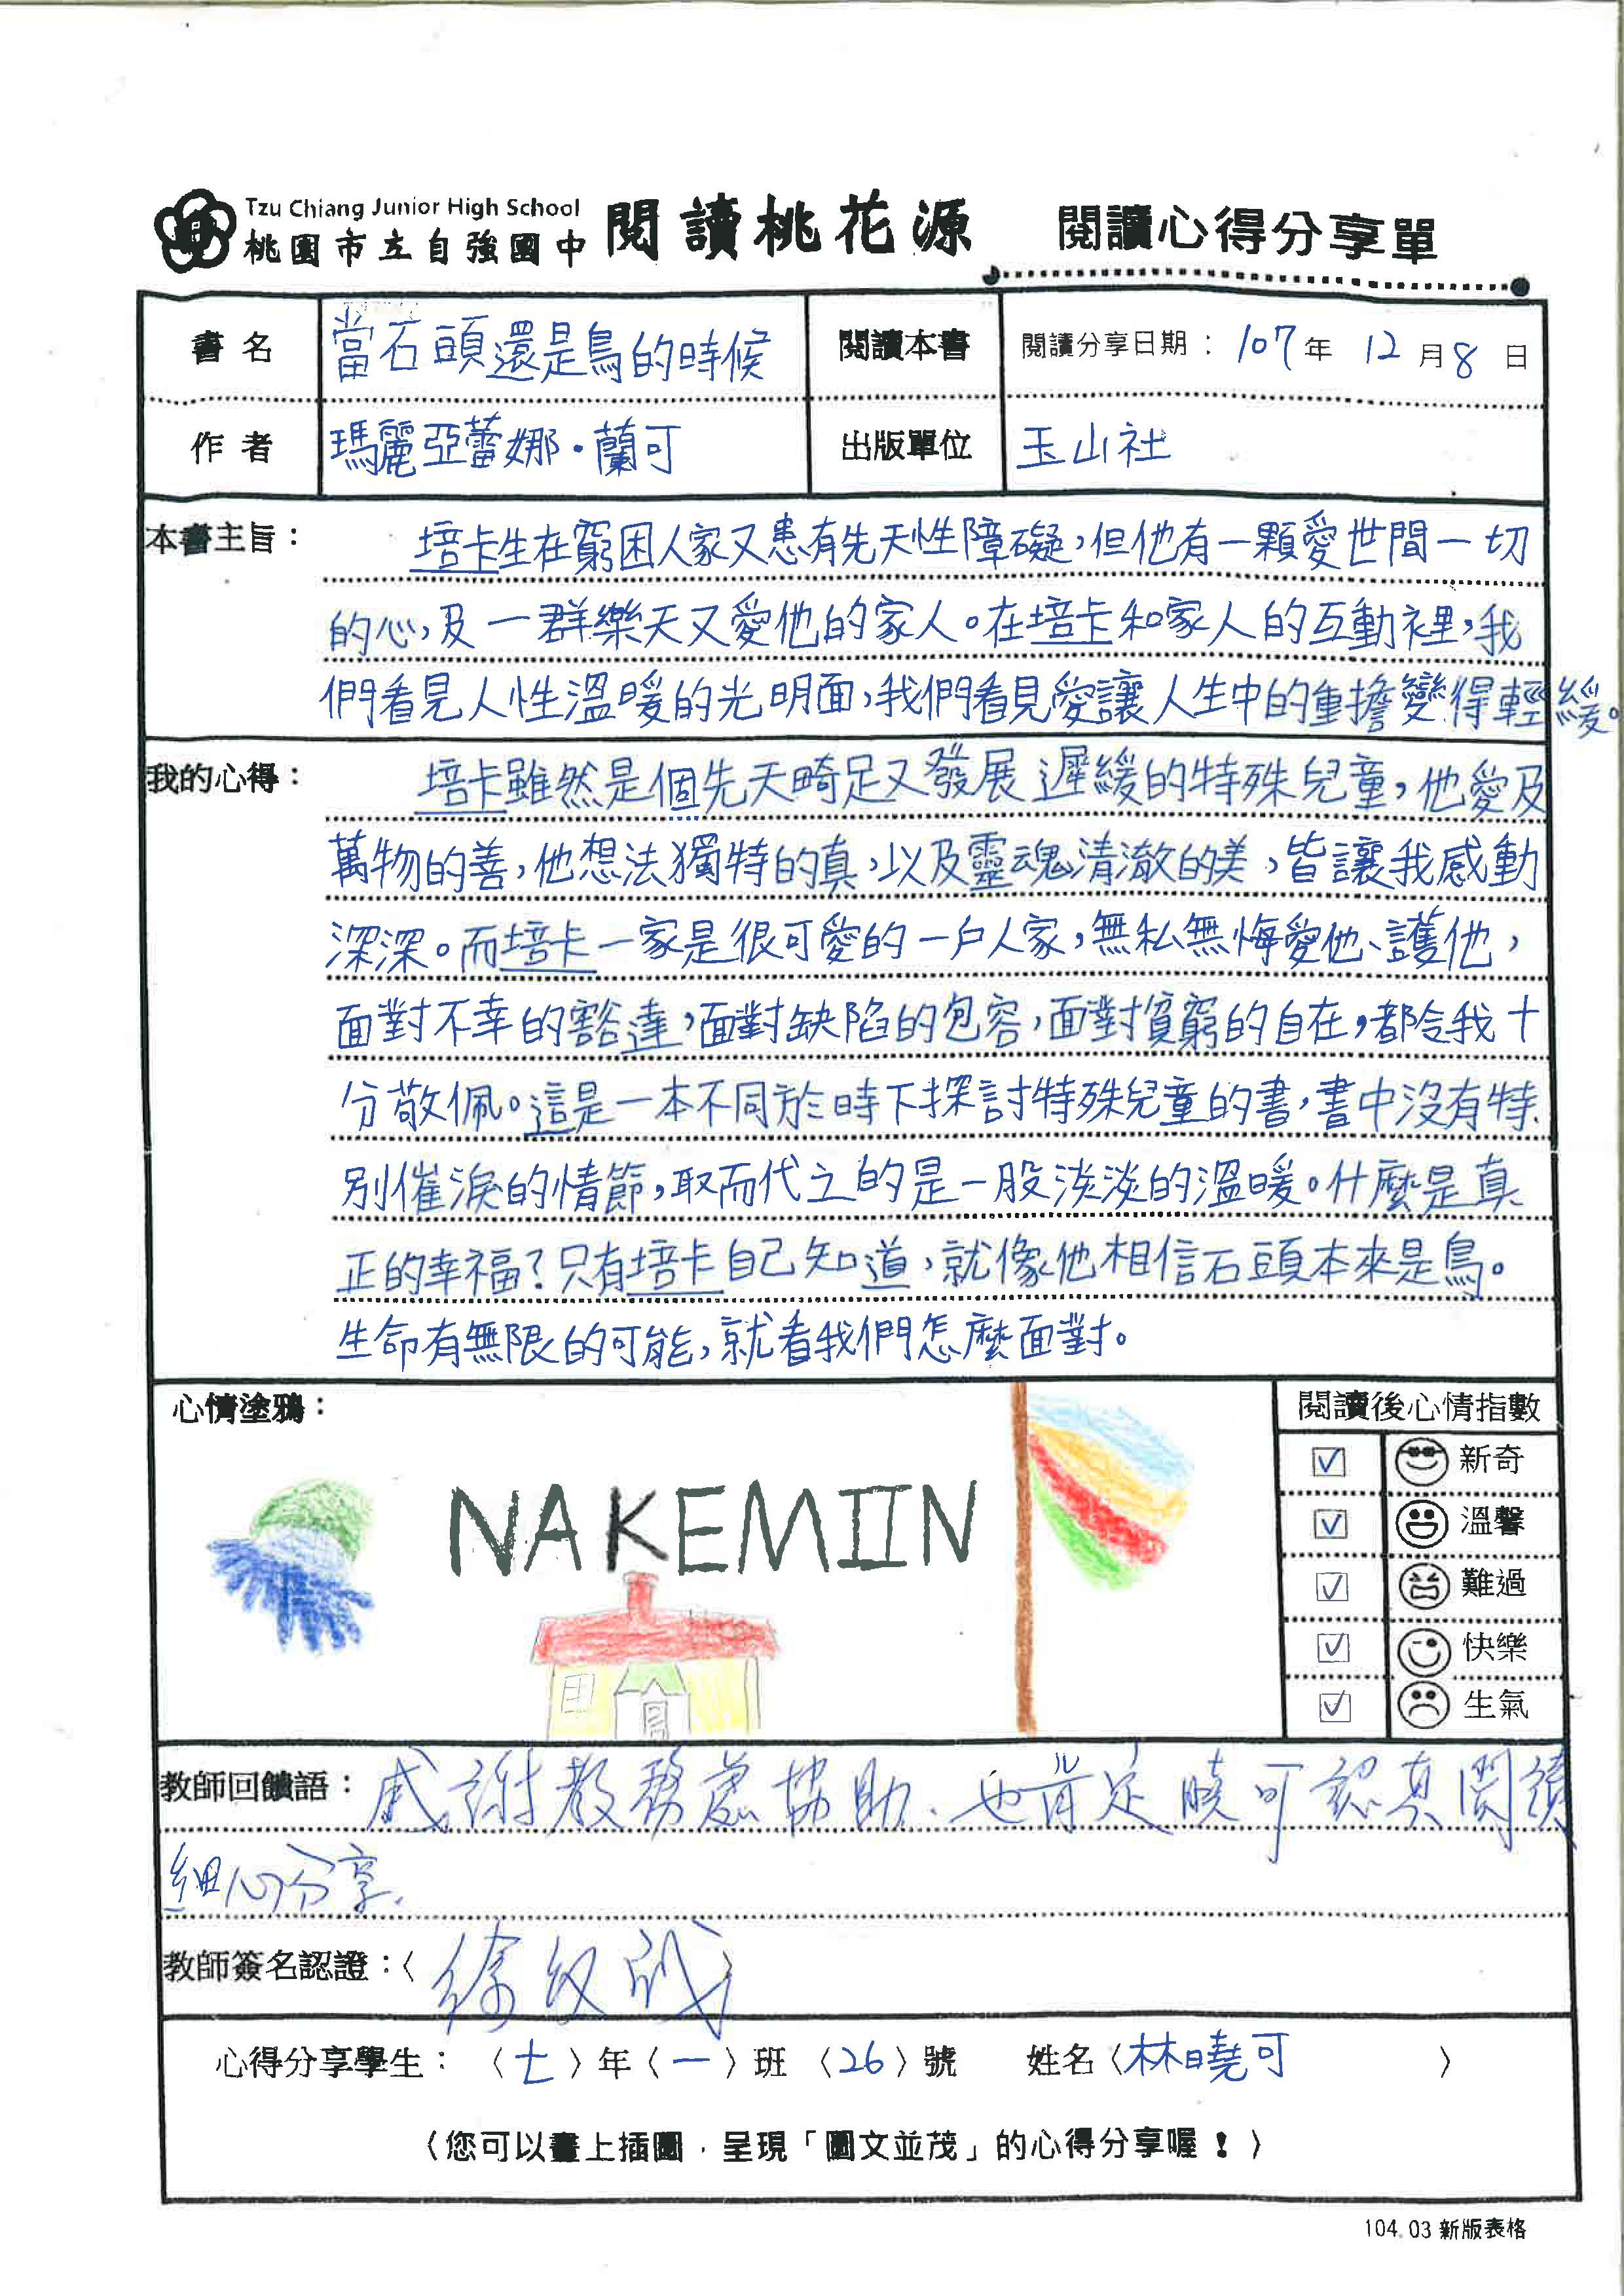 Tzu Chiang Junior High School
桃園市立自強國中 閱讀桃花源 閱讀心得分享單
書名 當石頭還是鳥的時候 閱讀本書 閱讀分享日期：107年12月8日
作者 瑪麗亞蕾娜·蘭可 出版單位 玉山社
本書主旨：培卡生在窮困人家又患有先天性障礙，但他有一顆愛世間一切
的心，及一群樂天又愛他的家人。在培卡和家人的互動裡，我
們看見人性溫暖的光明面，我們看見愛讓人生中的重擔變得輕緩。
我的心得：培卡雖然是個先天畸足又發展遲緩的特殊兒童，他愛及
萬物的善，他想法獨特的真，以及靈魂清澈的美，皆讓我感動
深深。而培卡一家是很可愛的一戶人家，無私無悔愛他、護他，
面對不幸的豁達，面對缺陷的包容，面對貧窮的自在，都令我十
分敬佩。這是一本不同於時下探討特殊兒童的書，書中沒有特
別催淚的情節，取而代之的是一股淡淡的溫暖。什麼是真
正的幸福？只有培卡自己知道，就像他相信石頭本來是鳥。
生命有無限的可能，就看我們怎麼面對。
心情塗鴉：
NAKEMIIN
閱讀後心情指數
☑ 新奇
☑ 溫馨
☑ 難過
☑ 快樂
☑ 生氣
教師回饋語：感謝教務處協助、也肯定曉可認真閱讀
細心分享、
教師簽名認證：〈徐
心得分享學生：〈七〉年〈一〉班〈26〉號 姓名〈林曉可〉
〈您可以畫上插圖，呈現「圖文並茂」的心得分享喔！〉
104.03 新版表格